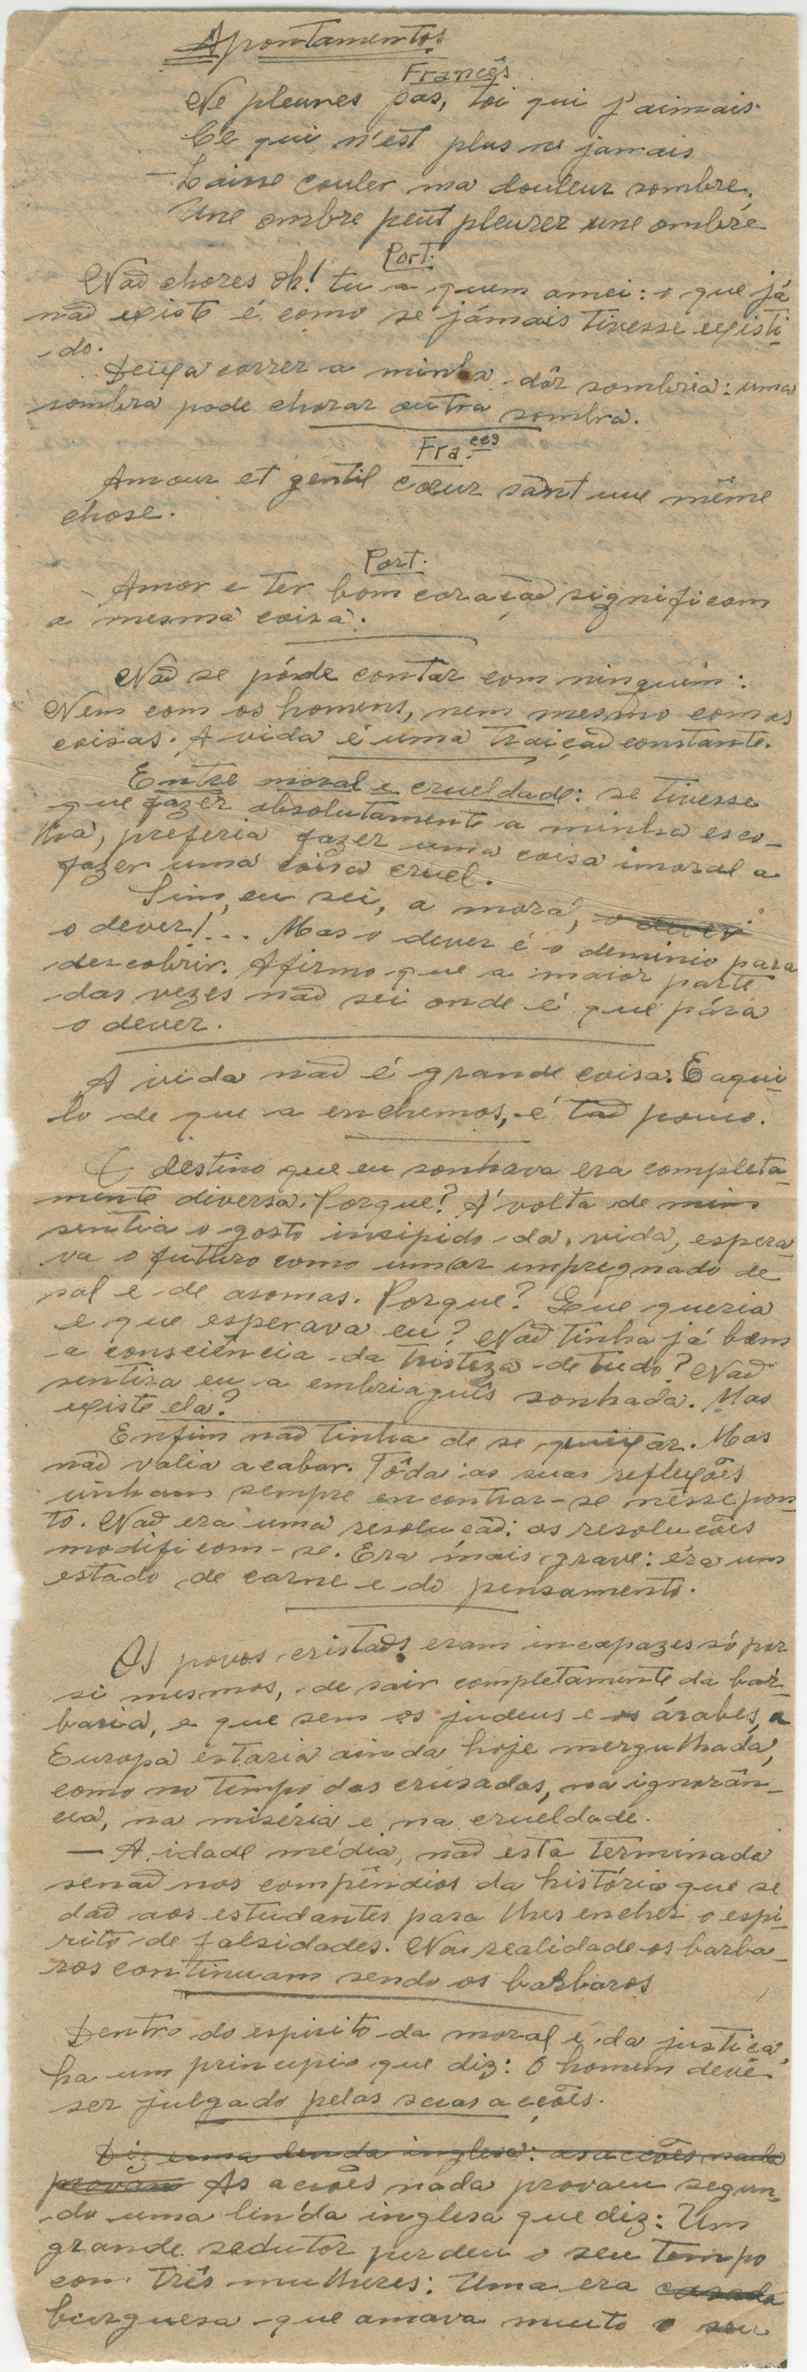 Apontamentos
Francês
Ne pleures pas, toi qui j'aimais
Ce qui n'est plus ne jamais
– Laisse couler ma douleur sombre,
Une ombre peut pleurer une ombre
Port.
Não chores oh! tu a quem amei: o que já
não existe é como se jámais tivesse existi-
do.
Deixa correr a minha dôr sombria: uma
sombra pode chorar outra sombra.
Fra.ces
Amour et gentil cœur sont une même
chose.
Port.
Amor e ter bom coração significam
a mesma coisa.
Não se póde contar com ninguem:
Nem com os homens, nem mesmo com as
coisas. A vida é uma traição constante.
Entre moral e crueldade: se tivesse
que fazer absolutamente a minha esco-
lha, preferia fazer uma coisa imoral a
fazer uma coisa cruel.
Sim, eu sei, a moral, o dever
o dever!... Mas o dever é o deminio para
descobrir. Afirmo que a maior parte
das vezes não sei onde é que pára
o dever.
A vida não é grande coisa. E aqui-
lo de que a enchemos, é tão pouco.
O destino que eu sonhava era completa-
mente diversa. Porque? Á volta de mim
sentia o gosto insipido da vida, espera-
va o futuro como um ar impregnado de
sal e de aromas. Porque? Que queria
e que esperava eu? Não tinha já bem
a consciência da tristeza de tudo? Não
sentira eu a embriaguês sonhada. Mas
existe ela?
Enfim não tinha de se queixar. Mas
não valia acabar. Tôda as suas reflexões
vinham sempre encontrar-se nesse pon-
to. Não era uma resolução: as resoluções
modificam-se. Era mais grave: éra um
estado de carne e do pensamento.
Os povos cristãos eram incapazes só por
si mesmos, de sair completamente da bar-
baria, e que sem os judeus e os árabes, a
Europa estaria ainda hoje mergulhada,
como no tempo das crusadas, na ignorân-
cia, na miséria e na crueldade.
– A idade média, não esta terminada
senão nos compêndios da história que se
dão aos estudantes para lhes encher o espi-
rito de falsidades. Na realidade os barba-
ros continuam sendo os barbaros
Dentro do espirito da moral e da justiça,
ha um principio que diz: O homem deve
ser julgado pelas suas acções.
Diz uma lenda inglesa: as acções nada
provam As acções nada provam segun-
do uma linda inglesa que diz: Um
grande sedutor perdeu o seu tempo
com três mulheres: Uma era casada
burguesa que amava muito o seu